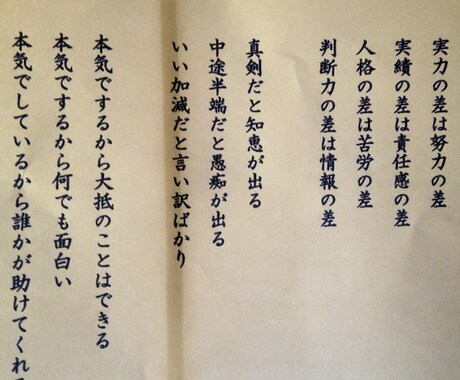 実力の差は努力の差
実績の差は責任感の差
人格の差は苦労の差
判断力の差は情報の差
真剣だと知恵が出る
中途半端だと愚痴が出る
いい加減だと言い訳ばかり
本気でするから大抵のことはできる
本気でするから何でも面白い
本気でしているから誰かが助けてくれる